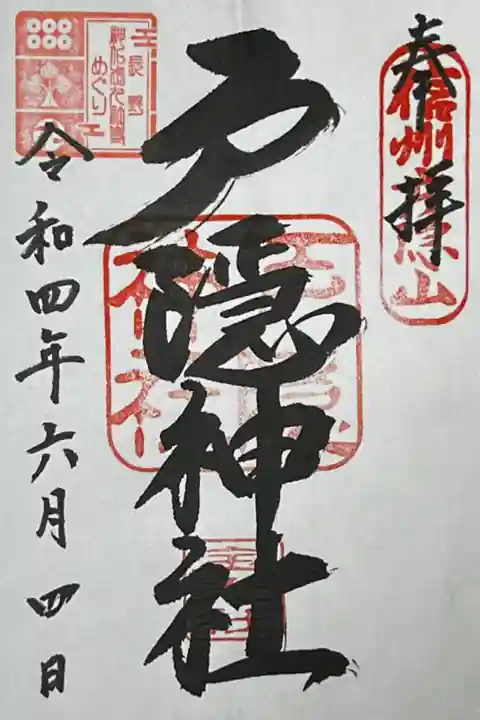 奉拝
信州
山
戸隠神社
神社
長野
めぐり
令和四年六月四日